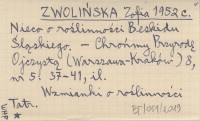 ZWOLIŃSKA Zofia 1952 c.
Nieco o roślinności Beskidu
Śląskiego. – Chrońmy Przyrodę
Ojczystą (Warszawa-Kraków) 8,
nr 5: 37-41, il.
Wzmianki o roślinności
Tatr.
WHP